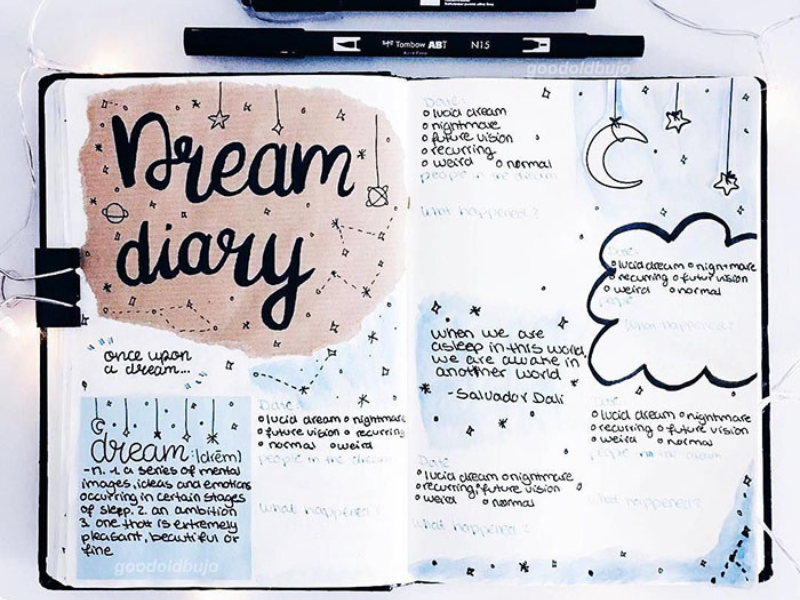 Tombow ABT N15
goodoldbujo
Dream
diary
once upon
a dream...
dream: [drēm]
-n. 1. a series of mental
images, ideas and emotions
occurring in certain stages
of sleep. 2. an ambition
3. one that is extremely
pleasant, beautiful or
fine
goodoldbujo
Date:
lucid dream nightmare
future vision recurring
normal weird
people in the dream
what happened?
Date:
lucid dream
nightmare
future vision
recurring
weird normal
people in the dream
what happened?
when we are
asleep in this world,
we are awake in
another world
-Salvador Dali
Date:
lucid dream nightmare
recurring future vision
weird normal
what happened?
Date:
lucid dream nightmare
recurring future vision
weird normal
people
what happened?
Date:
lucid dream nightmare
recurring future vision
weird normal
people in the dream
what happened?